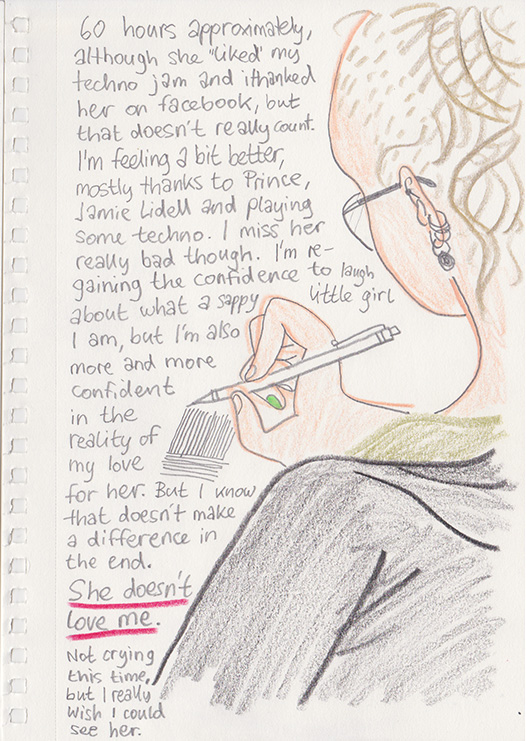 60 hours approximately,
although she "liked" my
techno jam and i thanked
her on facebook, but
that doesn't really count.
I'm feeling a bit better,
mostly thanks to Prince,
Jamie Lidell and playing
some techno. I miss her
really bad though. I'm re-
gaining the confidence to laugh
about what a sappy little girl
I am, but I'm also
more and more
confident
in the
reality of
my love
for her. But I know
that doesn't make
a difference in
the end.
She doesn't
love me.
Not crying
this time,
but I really
wish I could
see her.